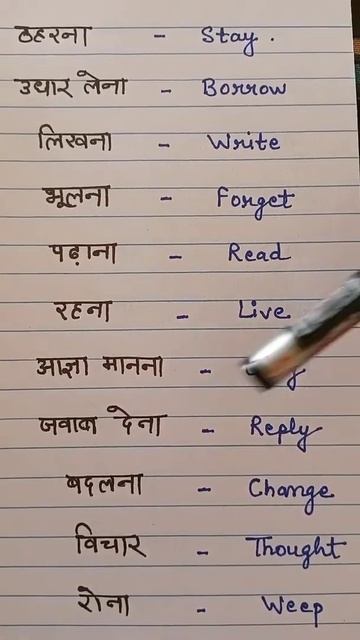 ठहरना - Stay.
उधार लेना - Borrow
लिखना - Write
भूलना - Forget
पढ़ाना - Read
रहना - Live
आज्ञा मानना -
जवाब देना - Reply
बदलना - Change
विचार - Thought
रोना - Weep